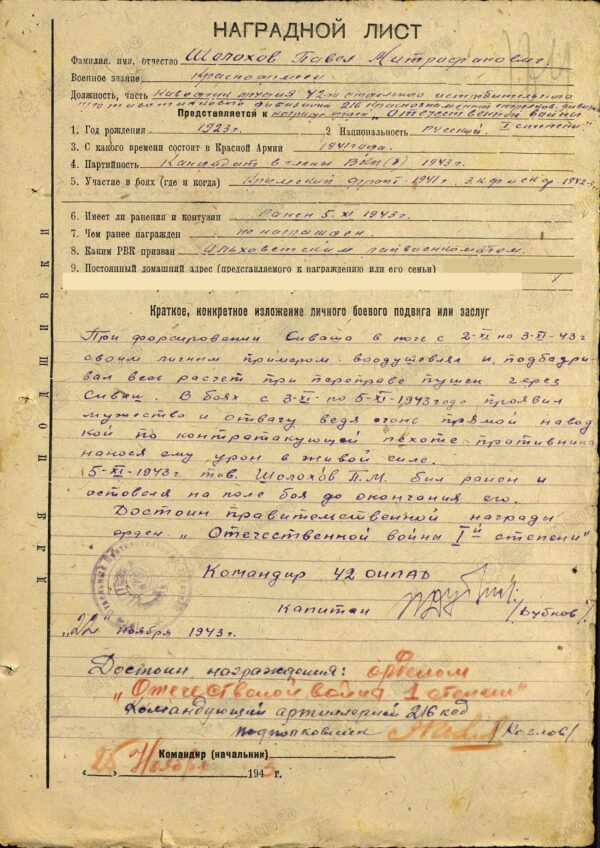 НАГРАДНОЙ ЛИСТ
Фамилия, имя, отчество Шолохов Павел Митрофанович
Военное звание Красноармеец
Должность, часть Наводчик орудия 42-го отдельного истребительного
противотанкового дивизиона 216 Краснознаменной стрелков. дивизии
Представляется к награде орден „Отечественной войны
I степени"
1. Год рождения 1923 г. 2 Национальность русский
3. С какого времени состоит в Красной Армии 1941 года.
4. Партийность Кандидат в члены ВКП(б) 1943 г.
5. Участие в боях (где и когда) Крымский фронт-1941 г.
6. Имеет ли ранения и контузии Ранен 5. XI 1943 г.
7. Чем ранее награжден не награжден
8. Каким РВК призван райвоенкоматом.
9. Постоянный домашний адрес (представляемого к награждению или его семьи)
Краткое, конкретное изложение личного боевого подвига или заслуг
При форсировании Сиваша в ночь с 2-XI на 3-XI-43 г
своим личным примером воодушевлял и подбадри-
вал весь расчет при переправе пушек через
Сиваш. В боях с 3-XI- по 5-XI-1943 года проявил
мужество и отвагу ведя огонь прямой навод
кой по контратакующей пехоте противника
нанося ему урон в живой силе.
5-XI-1943 г. тов. Шолохов П.М. был ранен и
оставался на поле боя до окончания его.
Достоин правительственной награды
орден „Отечественной войны I й степени"
Командир 42 ОИПАД
Капитан /Бубнов/
„22" ноября 1943 г.
Достоин награждения: орденом
„Отечественной войны 1 степени"
Командующий артиллерией 216 ксд
подполковник /Козлов/
Командир (начальник)
25 Ноября 1943 г.
ДЛЯ ПОДШИВКИ